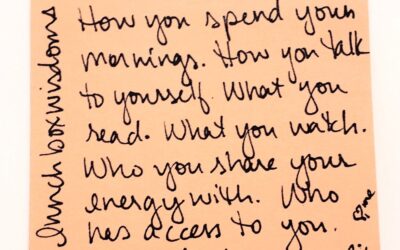 lunchboxwisdoms
How you spend your
mornings. How you talk
to yourself. What you
read. What you watch.
Who you share your
energy with. Who
has access to you.